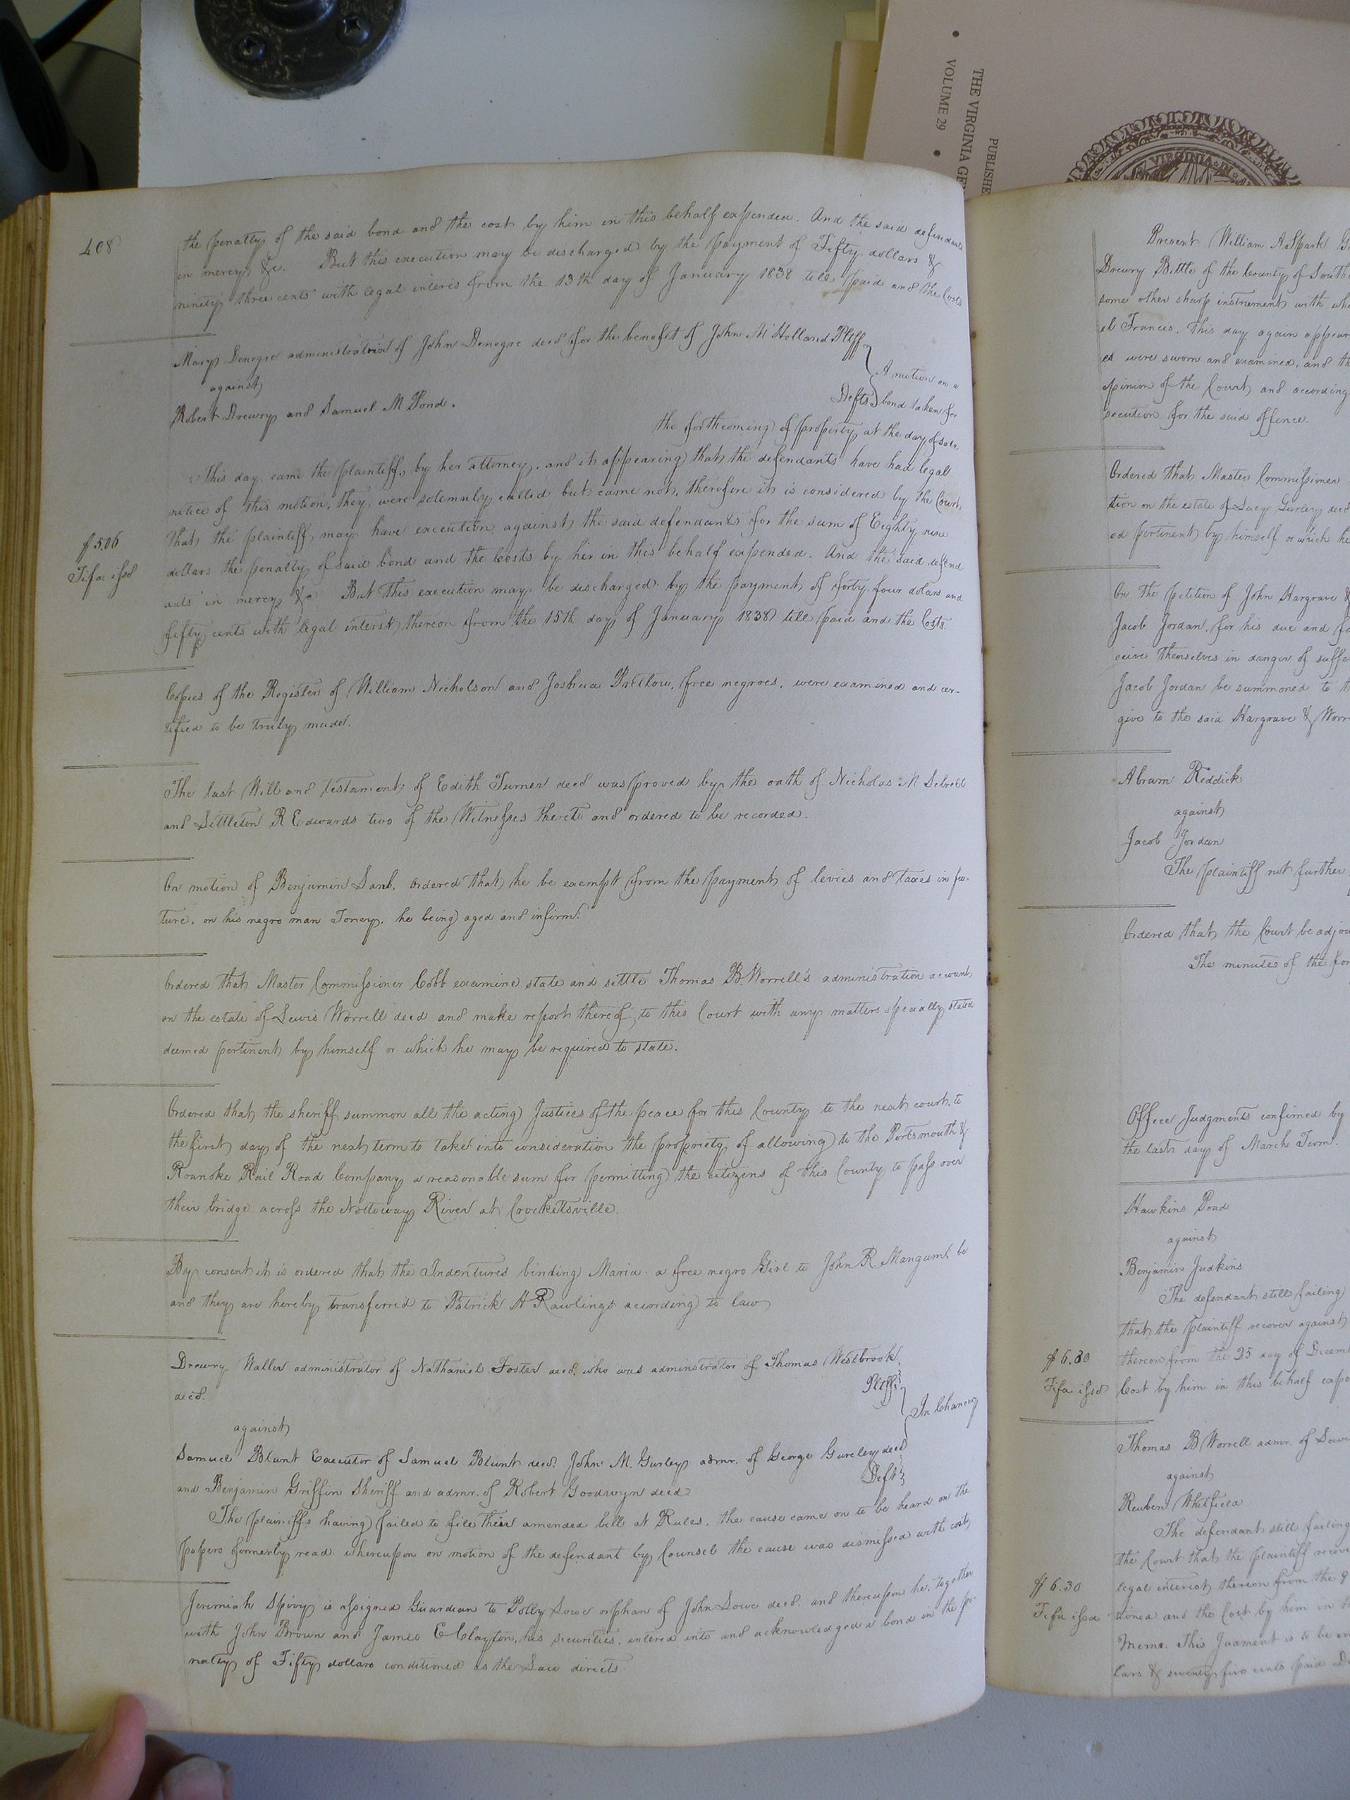 THE VIRGINIA GE
VOLUME 29
PUBLISHE
VIRGINIA IN
408
the penalty of the said bond and the cost by him in this behalf expended. And the said defendants
in mercy &c. But this execution may be discharged by the payment of Fifty dollars &
ninety three cents with legal interes from the 13th day of January 1838 till paid and the Costs
Mary Denegre administratrix of John Denegre decd for the benefit of John M Holland Pltff
against
A motion on a
Robert Drewry and Samuel M Pond.
Defts bond taken for
the forthcoming of property at the day of sale
This day came the plaintiff, by her attorney, and it appearing that the defendants have had legal
notice of this motion, they were solemnly called but came not, therefore it is considered by the Court,
that the plaintiff may have execution against the said defendants for the sum of Eighty nine
dollars the penalty of said bond and the Costs by her in this behalf expended. And the said defend
ants in mercy &c But this execution may be discharged by the payment of forty four dolars and
fifty cents with legal interest thereon from the 15th day of January 1838 till paid and the Costs.
$ 5.06
Fifa issd
Copies of the Register of William Nicholson and Joshua Pretlow, free negroes, were examined and cer-
tified to be truly made.
The last Will and testament of Edith Turner decd was proved by the oath of Nicholas M Sebrell
and Littleton R Edwards two of the Witnesses thereto and ordered to be recorded.
On motion of Benjamin Lanb, ordered that he be exempt from the payment of levies and taxes in fu-
ture, on his negro man Toney, he being aged and infirm.
Ordered that Master Commissioner Cobb examine state and settle Thomas B Worrell's administration account
on the estate of Lewis Worrell decd and make report thereof to this Court with any matters specially stated
deemed pertinent by himself or which he may be required to state.
Ordered that the sheriff summon all the acting Justices of the peace for this County to the next court, to
the first day of the next term to take into consideration the propriety of allowing to the Portsmouth &
Roanoke Rail Road Company a reasonable sum for permitting the citizens of this County to pass over
their bridge across the Nottoway River at Crockettsville.
By consent it is ordered that the Indentures binding Maria a free negro Girl to John R Mangumb be
and they are hereby transferred to Patrick H Rawlings according to law
Drewry Waller administrator of Nathaniel Foster decd, who was adminstrator of Thomas Westbrook,
decd.
Pltff
against
In Chancery
Samuel Blunt Executor of Samuel Blunt decd. John M. Gurley admr. of George Gureley decd
and Benjamin Griffin Sheriff and admr. of Robert Goodwyn decd
Defts
The plaintiffs having failed to file their amended bill at Rules, the cause came on to be heard on the
papers formerly read whereupon on motion of the defendant by Counsel the cause was dismissed with cost,
Jeremiah Spivy is assigned Guardian to Polly Lowe orphan of John Lowe decd. and thereupon he, together
with John Brown and James E Clayton, his securities, entered into and acknowledged a bond in the pe-
nalty of Fifty dollars conditioned as the Law directs
Present William A Spark
Drewry Bittle of the County of South
some other sharp instrument with wh
el Francis. This day again appear
ed were sworn and examined, and th
opinion of the Court and according
secution for the said offence.
Ordered that Master Commissioner
tion on the estate of Lucy Gurley decd
ed pertinent by himself or which he
On the petition of John Hargrave &
Jacob Jordan, for his due and fa
ceive themselves in danger of suffe
Jacob Jordan be summoned to th
give to the said Hargrave & Worr
Abram Riddick
against
Jacob Jordan
The plaintiff not further
Ordered that the Court be adjou
The minutes of the for
Office Judgments confirmed by
the last day of March Term.
Hawkins Pond
against
Benjamin Judkins
The defendant still failing
that the plaintiff recover against
$ 6.30
thereon from the 25 day of Decem
Fifa issd
Cost by him in this behalf expe
Thomas B Worrell admr. of Lewi
against
Reuben Whitfield
The defendant still failing
the Court that the plaintiff recov
$ 6.30
legal interest thereon from the 9
Fifa issd
tioned and the Cost by him in t
Memo. This Judgment is to be
lars & seventy five cents paid